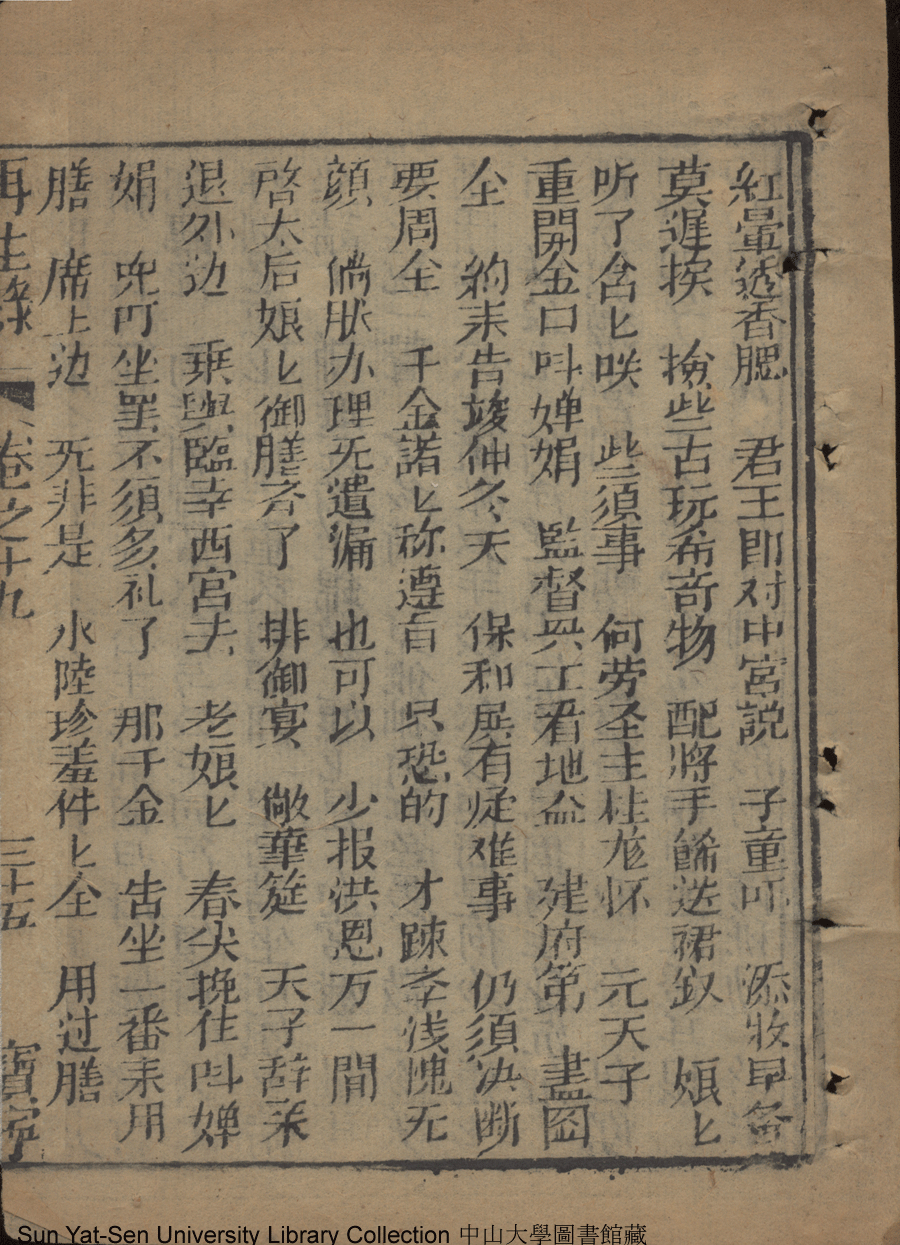 紅暈透香腮　君王即对中宮説　子童吓　添妝早备
莫遲挨　撿些古玩希奇物　配將手餙送裙釵　娘匕
听了含匕咲　些須事　何劳圣主桂龙怀　元天子
重開金口呌婵娟　監督兴工看地盆　建府第　畫图
全　約来告竣仲冬天　保和展有疑难事　仍須决断
要周全　千金諾匕称遵旨　只恐的　才踈李浅愧无
顔　倘肰办理无遺漏　也可以　少报洪恩万一間
啓太后娘匕御膳齐了　排御宴　敞華筵　天子辞来
退外边　乗輿臨幸西宮去　老娘匕　春尖挽住呌婵
娟　免叮坐罢不須多礼了　那千金　告坐一番来用
膳　席上边　无非是　水陸珍羞件匕全　用过膳
再生緣　卷之十九　三十五　寳寧
Sun Yat-Sen University Library Collection 中山大學圖書館藏